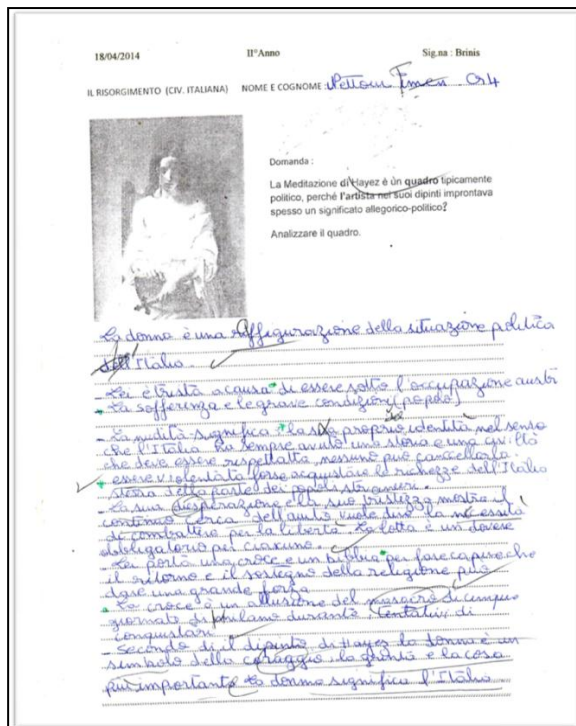 18/04/2014 II°Anno Sig.na : Brinis
IL RISORGIMENTO (CIV. ITALIANA) NOME E COGNOME :
Domanda :
La Meditazione di Hayez è ùn quadro tipicamente
politico, perché l'artista nei suoi dipinti improntava
spesso un significato allegorico-politico?
Analizzare il quadro.
La donna è una raffigurazione della situazione politica
dell'Italia.
- Lei è trista a causa di essere sotto l'occupazione
- La sofferenza e le grave condizioni (popolo)
- La nudità significa la propria identità nel senso
che l'Italia ha sempre avuto una storia e una civiltà
che deve essere rispettata, nessuno può cancellarla.
essere violentata forse acquistare le richezze dell'Italia
stessa della parte dei popoli stranieri.
- La sua disperazione e la suo tristezza mostra il
continuo cerca dell'aiuto vuole dire la necessità
di combattere per la libertà. La lotta è un dovere
obbligatorio per ciascuno.
- Lei porta una croce e un bibbia per fare capire che
il ritorno e il sostegno della religione può
dare una grande forza
La croce è un allusione del massacro di cinque
giornate di milano durante tentativi di
conquistare
- Secondo di il dipinto di Hayez la donna è un
simbolo della coraggio, la e la cosa
più importante la donna significa l'Italia